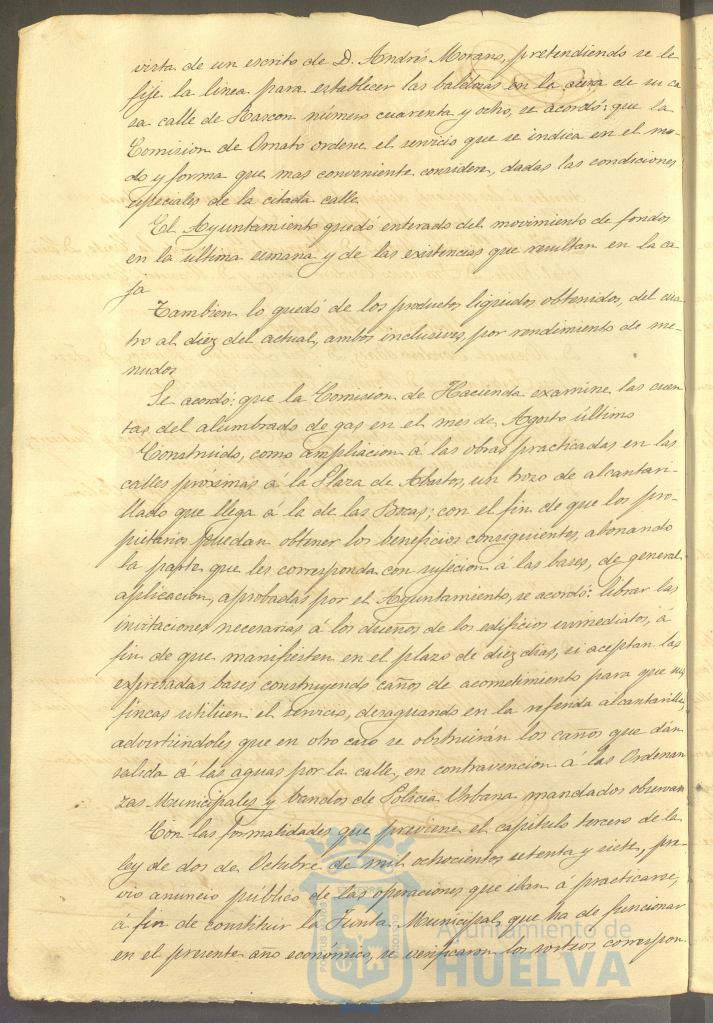 vista de un escrito de D. Andrés Morano, pretendiendo se le
fije la linea para establecer las baldosas en la acera de su ca
sa calle de Rascon número cuarenta y ocho, se acordó: que la
Comision de Ornato ordene el servicio que se indica en el mo-
do y forma que mas conveniente considere, dadas las condiciones
especiales de la citada calle.
El Ayuntamiento quedó enterado del movimiento de fondos
en la última semana y de las existencias que resultan en la ca
ja
Tambien lo quedó de los productos líquidos, obtenidos, del cua
tro al diez del actual, ambos inclusives, por rendimiento de me-
nudos
Se acordó: que la Comision de Hacienda examine las cuen
tas del alumbrado de gas en el mes de Agosto último
Construido, como ampliacion á las obras practicadas en las
calles próximas á la Plaza de Abastos, un trozo de alcantari-
llado que llega á la de las Bocas; con el fin de que los pro-
pietarios puedan obtener los beneficios consiguientes, abonando
la parte que les corresponda con sujecion á las bases, de general
aplicacion, aprobadas por el Ayuntamiento, se acordó: librar las
invitaciones necesarias á los dueños de los edificios inmediatos, á
fin de que manifiesten en el plazo de diez dias, si aceptan las
expresadas bases construyendo caños de acometimiento para que sus
fincas utilicen el servicio, desaguando en la referida alcantarilla,
advertiéndoles que en otro caso se obstruirán los caños que dán
salida á las aguas por la calle, en contravencion á las Ordenan
zas Municipales y bandos de Policia Urbana mandados observar
Con las formalidades que previene el capítulo tercero de la
ley de dos de Octubre de mil ochocientos setenta y siete, pré-
vio anuncio público de las operaciones que iban á practicarse,
á fin de constituir la Junta Municipal que ha de funcionar
en el presente año económico, se verificaron los sorteos correspon-
Ayuntamiento de
HUELVA